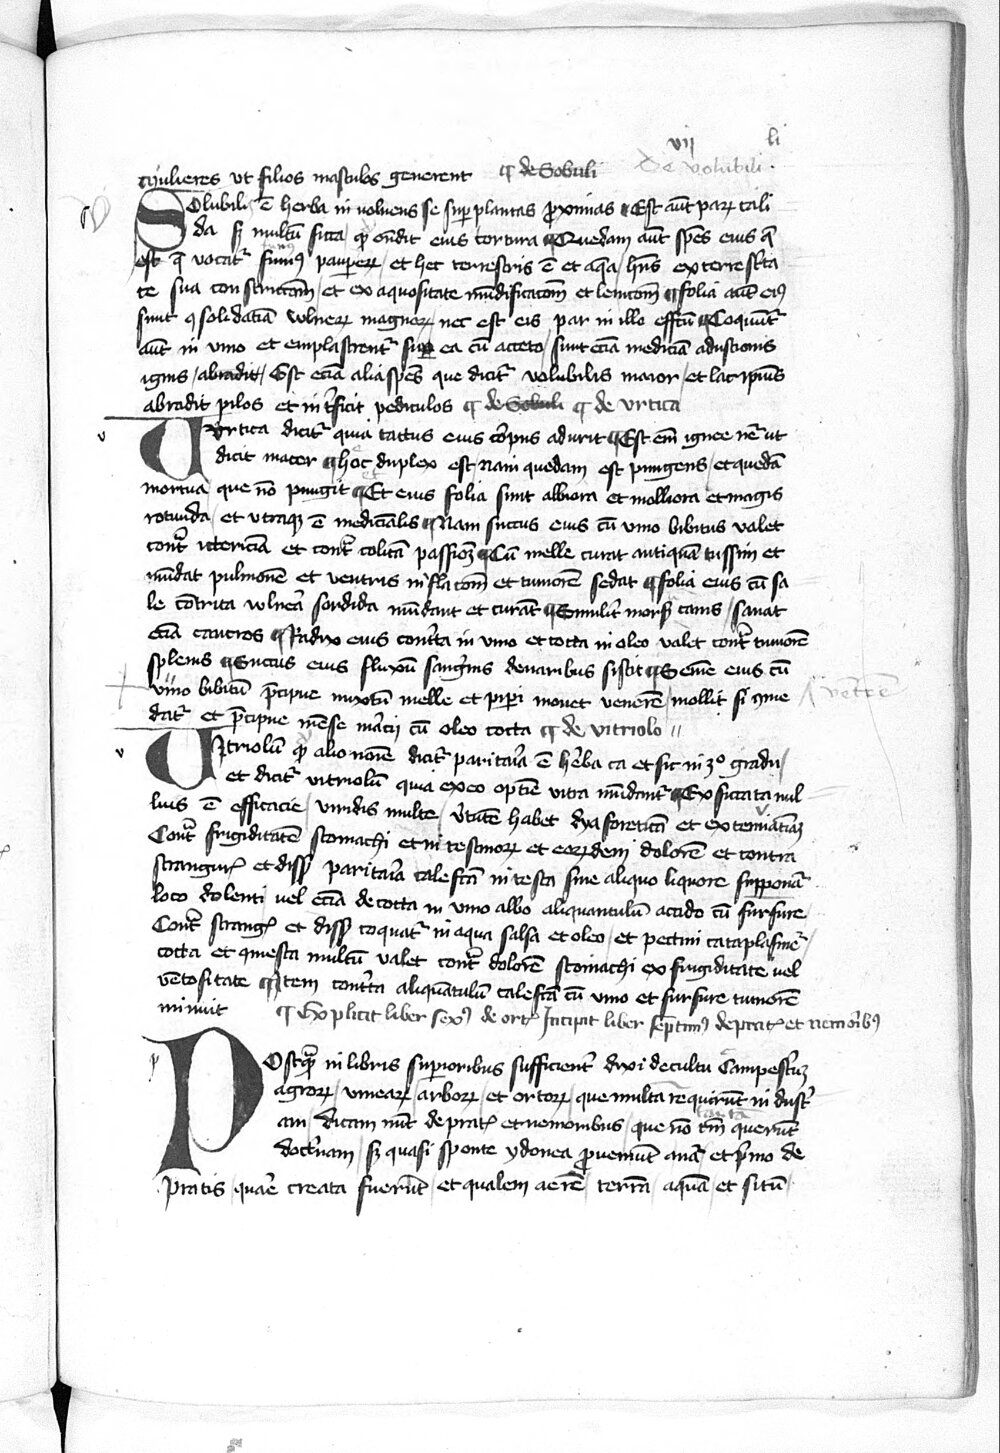 vij li
De volubili
mulieres ut filios masculos generent ¶ de Sobuli
Solubilis ē herba in volvens se sup plantas proximas ¶ Est aut̄ parꝝ cali
da sꝫ multū sicca qđ oñdit eius tortura ¶ Quedam aut̄ sp̄es eius q̄
est q̄ vocat̄ funis pauperꝝ / et hec terrestris ē et aq̄a / hn̄s ex terrestᵃta
te sua constrictōm̄ / et ex aquositate mūdificatōm̄ et lenitōm̄ ¶ folia aut̄ eiꝰ
sunt ꝯsolidatīa vulnerꝝ magnorꝝ / nec est eis par in illo effectū ¶ Coquūt̄
aut̄ in vino et emplastrent̄ sup ea cū acceto / sunt eciā medicīa adustionis
ignis / abradit / Est eciā alia sp̄es que dicit̄ volubilis maior / et lac ipius
abradit pilos et int̄ficit pediculos ¶ de Sobuli ¶ de urtica
v Urtica dicit̄ quia tactus eius corpus adurit ¶ Est em̄ ignee nᵉ ut
dicit macer ¶ hec duplex est / nam quedam est pungens / et quedā
mortua / que nō pungit ¶ Et eius folia sunt albiora et molliora et magis
rotunda / et utraqꝫ ē medicīalis ¶ Nam succus eius cū vino bibitus valet
cont̄ ictericiā et cont̄ colicā passioꝫ ¶ Cū melle curat antiquā tussim et
mūdat pulmonē et ventris inflatōm̄ et tumorē sedat ¶ folia eius cū sa
le cōtrita vulnera sordida mūdant et curāt ¶ Similit̄ morsꝫ canis / sanat
eciā cancros ¶ Radix eius cont̄ta in vino et cocta in oleo valet cont̄ tumorē
splenis ¶ Succus eius fluxū sanḡnis de naribus sistit ¶ Semē eius cū
vino bibitū p̄cipue mixtū melle et pipi movet venerē / mollit si ꝯme
dat̄ et p̄cipue mēse m̄cij cū oleo cocta ¶ de vitriolo //
ventrē
v Vitriolū qđ alio noīe dicit̄ paritaria ē hᵉba ca et sic in 3º gradu /
et dicit̄ vitriolū quia ex eo optīe vitra mūdant̄ ¶ Exsiccata nul
lius ē efficacie / viridis multe / v̄tutē habet dyaforeticā et extenuatīaꝫ
Cont̄ frigiditatē stomachi et intestinorꝝ et eorꝝdem dolorē et contra
stranguᵣ et diss̄ paritaria calefc̄a in testa sine aliquo liquore supponat̄
loco dolenti vel eciā decocta in vino albo aliquantulū acido cū furfure
Cont̄ stranḡ et diss̄ coquat̄ in aqua salsa et oleo / et pectini cataplasmet̄ /
cocta et ꝯmesta multū valet cont̄ dolorē stomachi ex frigiditate vel
vētositate ¶ Item cont̄ta aliquātulū calefc̄ā cū vino et furfure tumorē
minuit ¶ Explicit liber sextꝰ de ort̄ Incipit liber septimꝰ de prat̄ et nemoribꝰ
p Postq̄ in libris supioribus sufficient̄ dixi de cultu Campestriū
agrorꝝ / vinearꝝ / arborꝝ / et ortorꝝ / que multā requirūt industᵃ
am / dicam nūc de prat̄ et nemoribus / que nō tm̄ querūt
tantā
doctᵃnam / sꝫ quasi sponte ydonea proveniūt ana / et p̄mo de
pratis quare creata fuerūt / et qualem aerē / terrā aquā et sitū